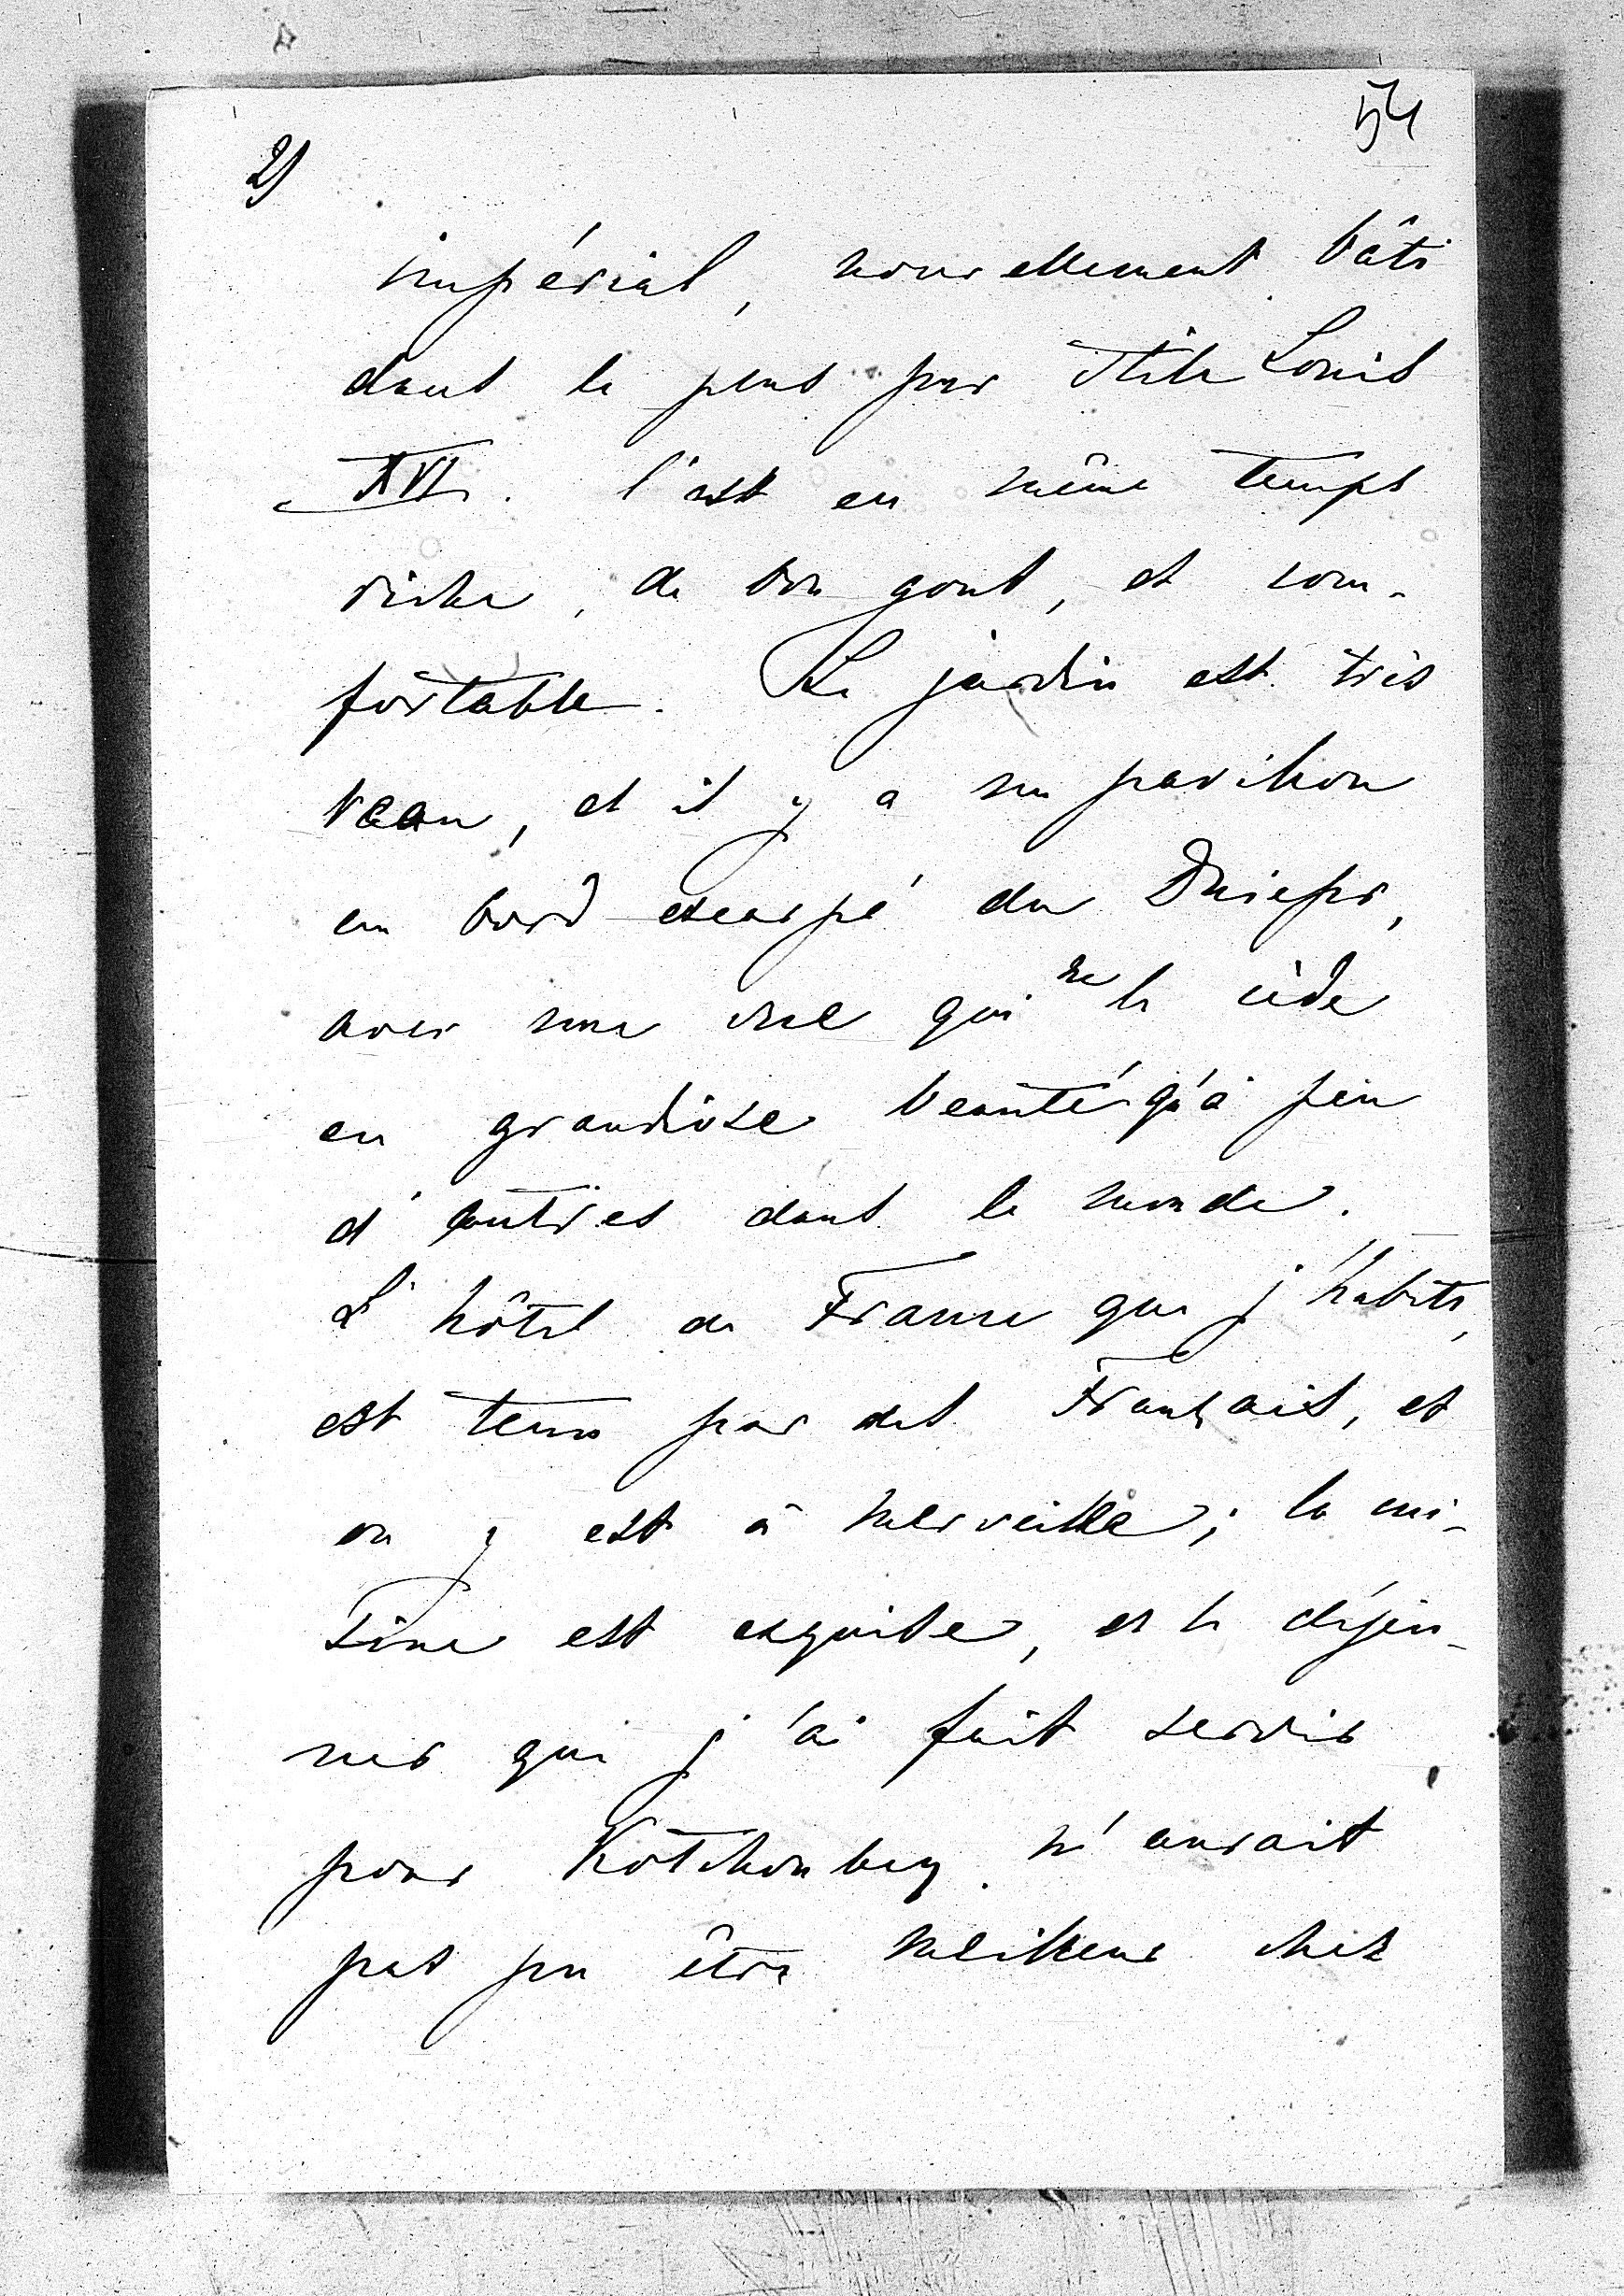 54
2)
impérial, nouvellement bâti
dans le plus pur stile Louis
XVI. C'est en même temps
riche, de bon gout, et com-
fortable. Le jardin est très
beau, et il y a un pavillon
au bord escarpé du Dniepr,
avec une vue qui ne le cède
en grandiose beauté qu'à peu
d'autres dans le monde.
L'hôtel de France que j'habite,
est tenu par des Français, et
on y est à merveille; la cui-
sine est exquise, et le déjeu-
ner que j'ai fait servir
pour Kotchoubey n'aurait
pas pu être meilleur chez